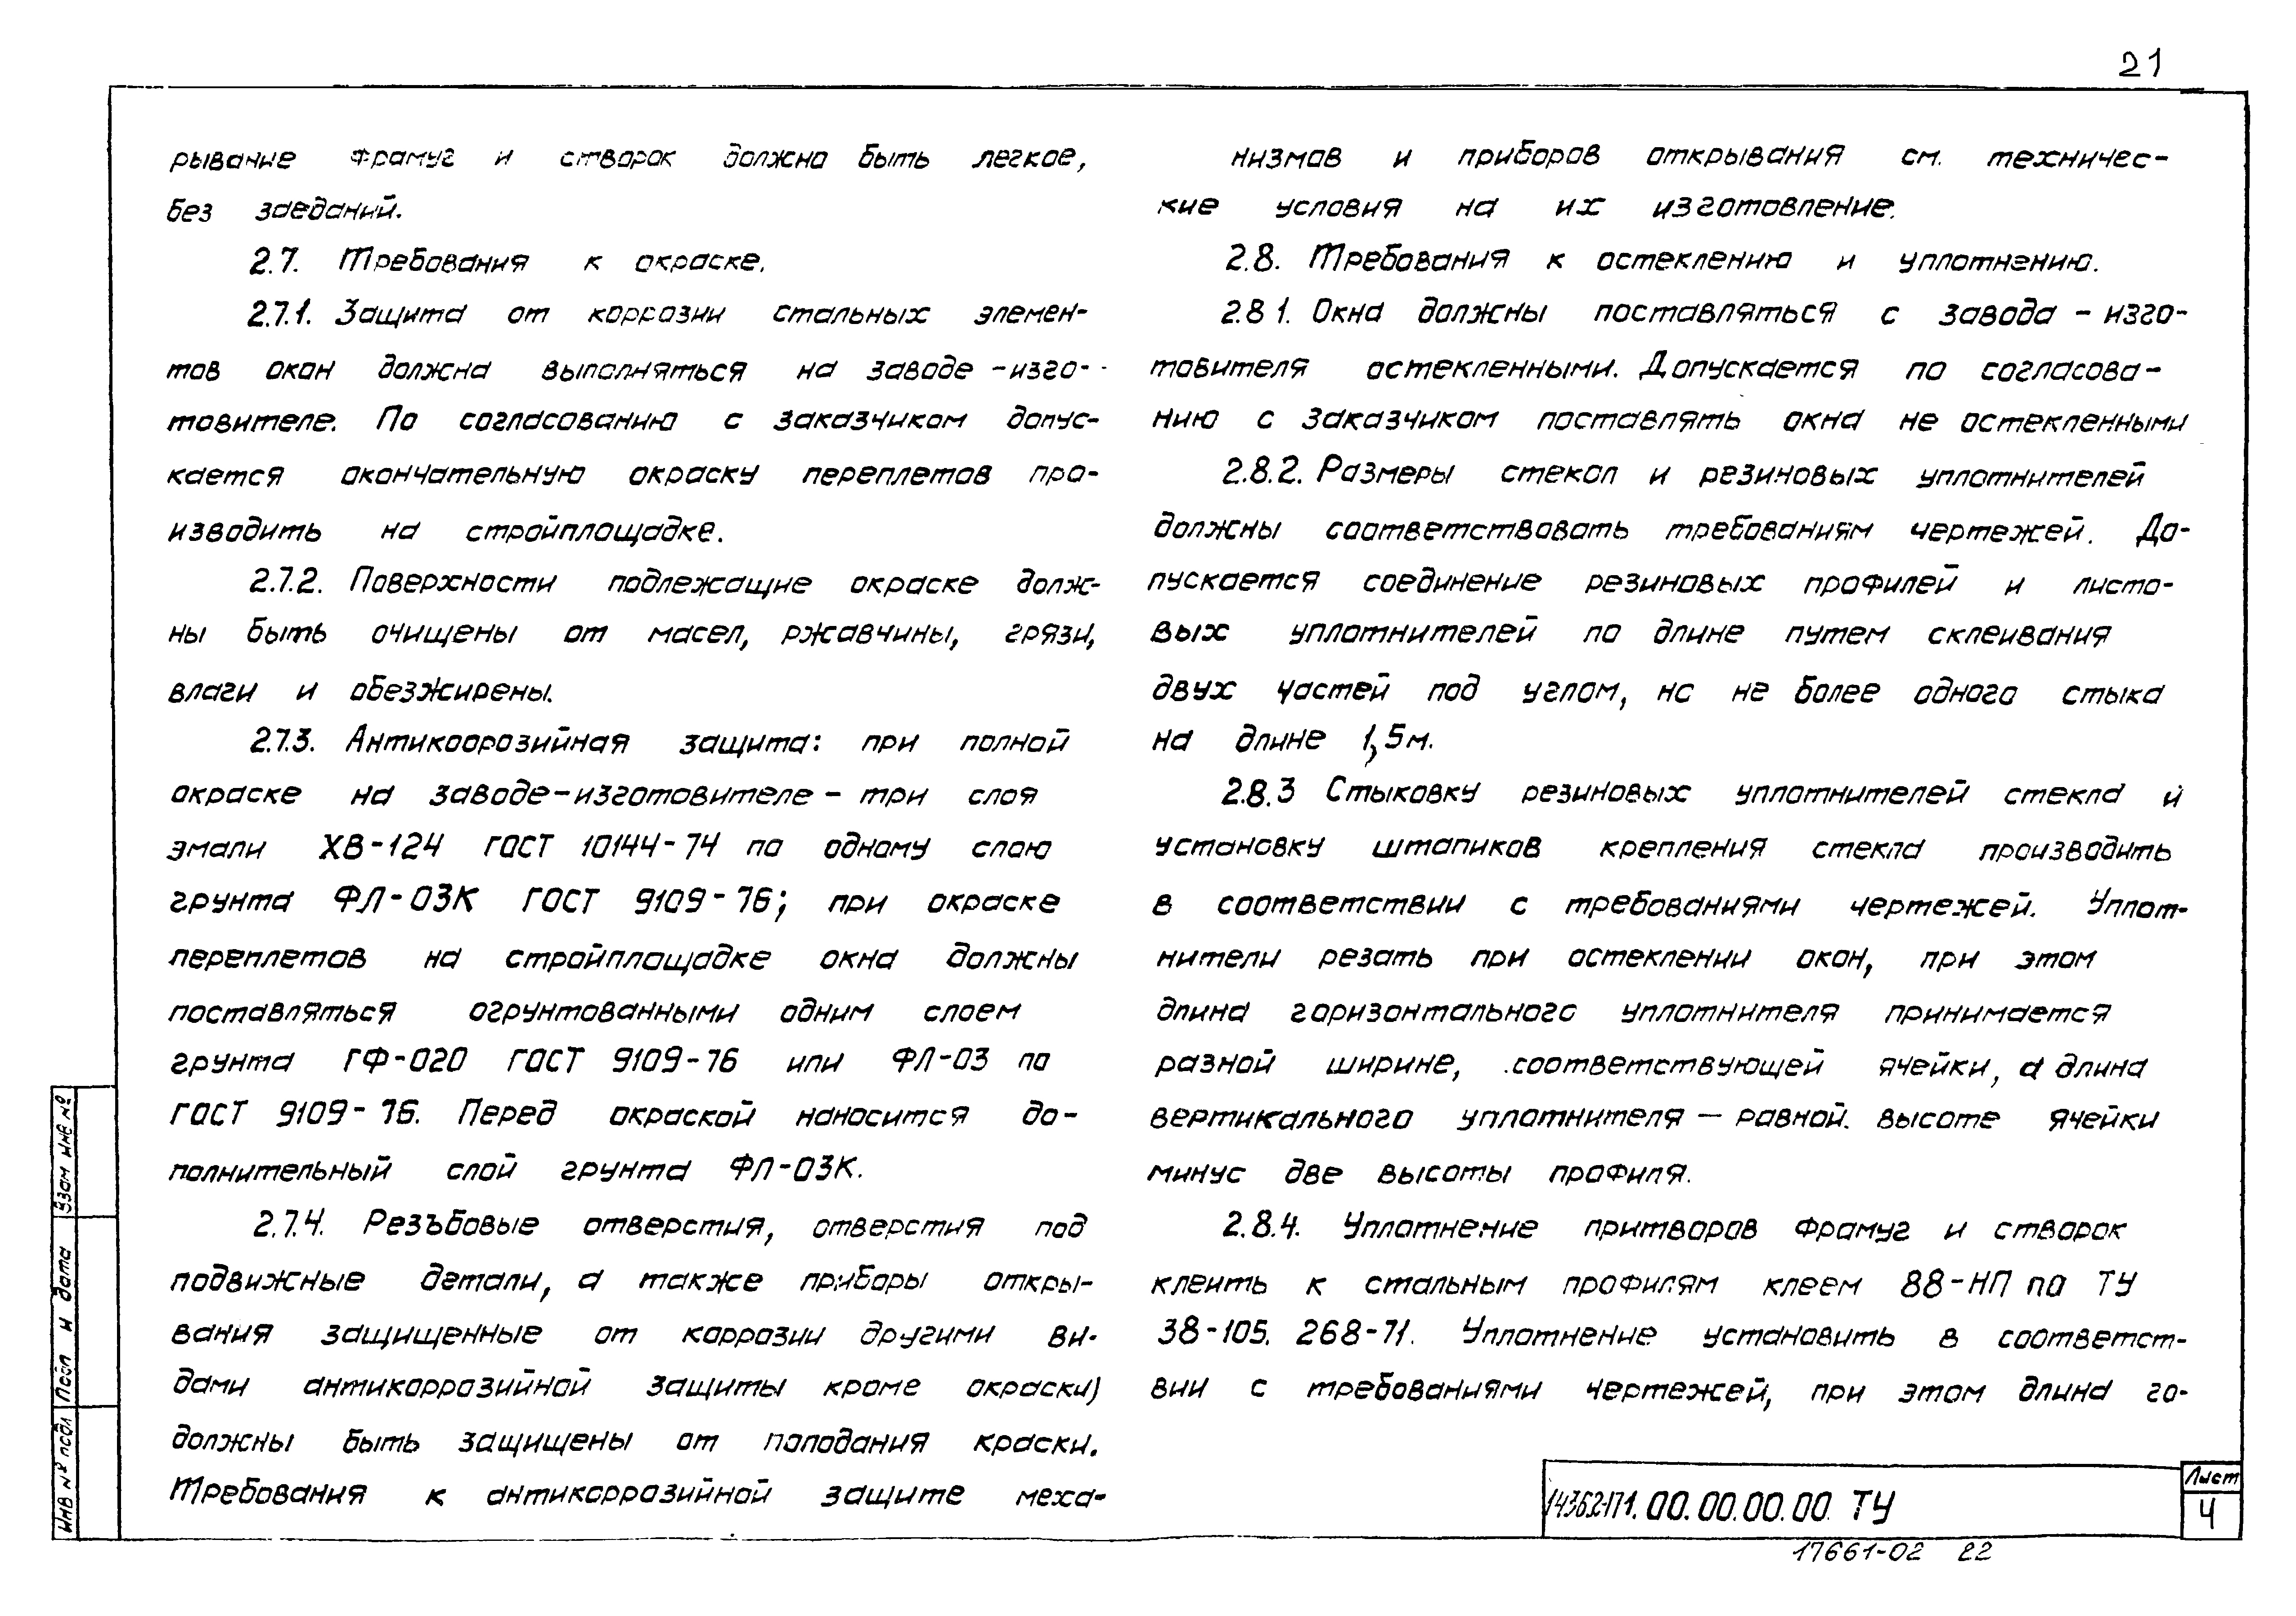 21
рывание фрамуг и створок должно быть легкое,
без заеданий.
2.7. Требования к окраске.
2.7.1. Защита от коррозии стальных элемен-
тов окон должна выполняться на заводе-изго-
товителе. По согласованию с заказчиком допус-
кается окончательную окраску переплетов про-
изводить на стройплощадке.
2.7.2. Поверхности подлежащие окраске долж-
ны быть очищены от масел, ржавчины, грязи,
влаги и обезжирены.
2.7.3. Антикоорозийная защита: при полной
окраске на заводе-изготовителе - три слоя
эмали ХВ-124 ГОСТ 10144-74 по одному слою
грунта ФЛ-03К ГОСТ 9109-76; при окраске
переплетов на стройплощадке окна должны
поставляться огрунтованными одним слоем
грунта ГФ-020 ГОСТ 9109-76 или ФЛ-03 по
ГОСТ 9109-76. Перед окраской наносится до-
полнительный слой грунта ФЛ-03К.
2.7.4. Резъбовые отверстия, отверстия под
подвижные детали, а также приборы откры-
вания защищенные от коррозии другими ви-
дами антикоррозийной защиты кроме окраски)
должны быть защищены от пополадания краски.
Требования к антикоррозийной защите меха-
низмов и приборов открывания см. техничес-
кие условия на их изготовление.
2.8. Требования к остеклению и уплотнению.
2.8 1. Окна должны поставляться с завода-изго-
товителя остекленными. Допускается по согласова-
нию с заказчиком поставлять окна не остекленными
2.8.2. Размеры стекол и резиновых уплотнителей
должны соответствовать требованиям чертежей. До-
пускается соединение резиновых профилей и листо-
вых уплотнителей по длине путем склеивания
двух частей под углом, но не более одного стыка
на длине 1,5м.
2.8.3 Стыковку резиновых уплотнителей стекла и
установку штапиков крепления стекла производить
в соответствии с требованиями чертежей. Уплот-
нители резать при остеклении окон, при этом
длина горизонтального уплотнителя принимается
разной ширине, соответствующей ячейки, а длина
вертикального уплотнителя — равной. высоте ячейки
минус две высоты профиля.
2.8.4. Уплотнение притворов фрамуг и створок
клеить к стальным профилям клеем 88-НП по ТУ
38-105. 268-71. Уплотнение установить в соответст-
вии с требованиями чертежей, при этом длина го-
Взам инв №
Подп и дата
Инв № подл
1.436.2-17.1.00.00.00.00 ТУ
Лист
4
17661-02 22